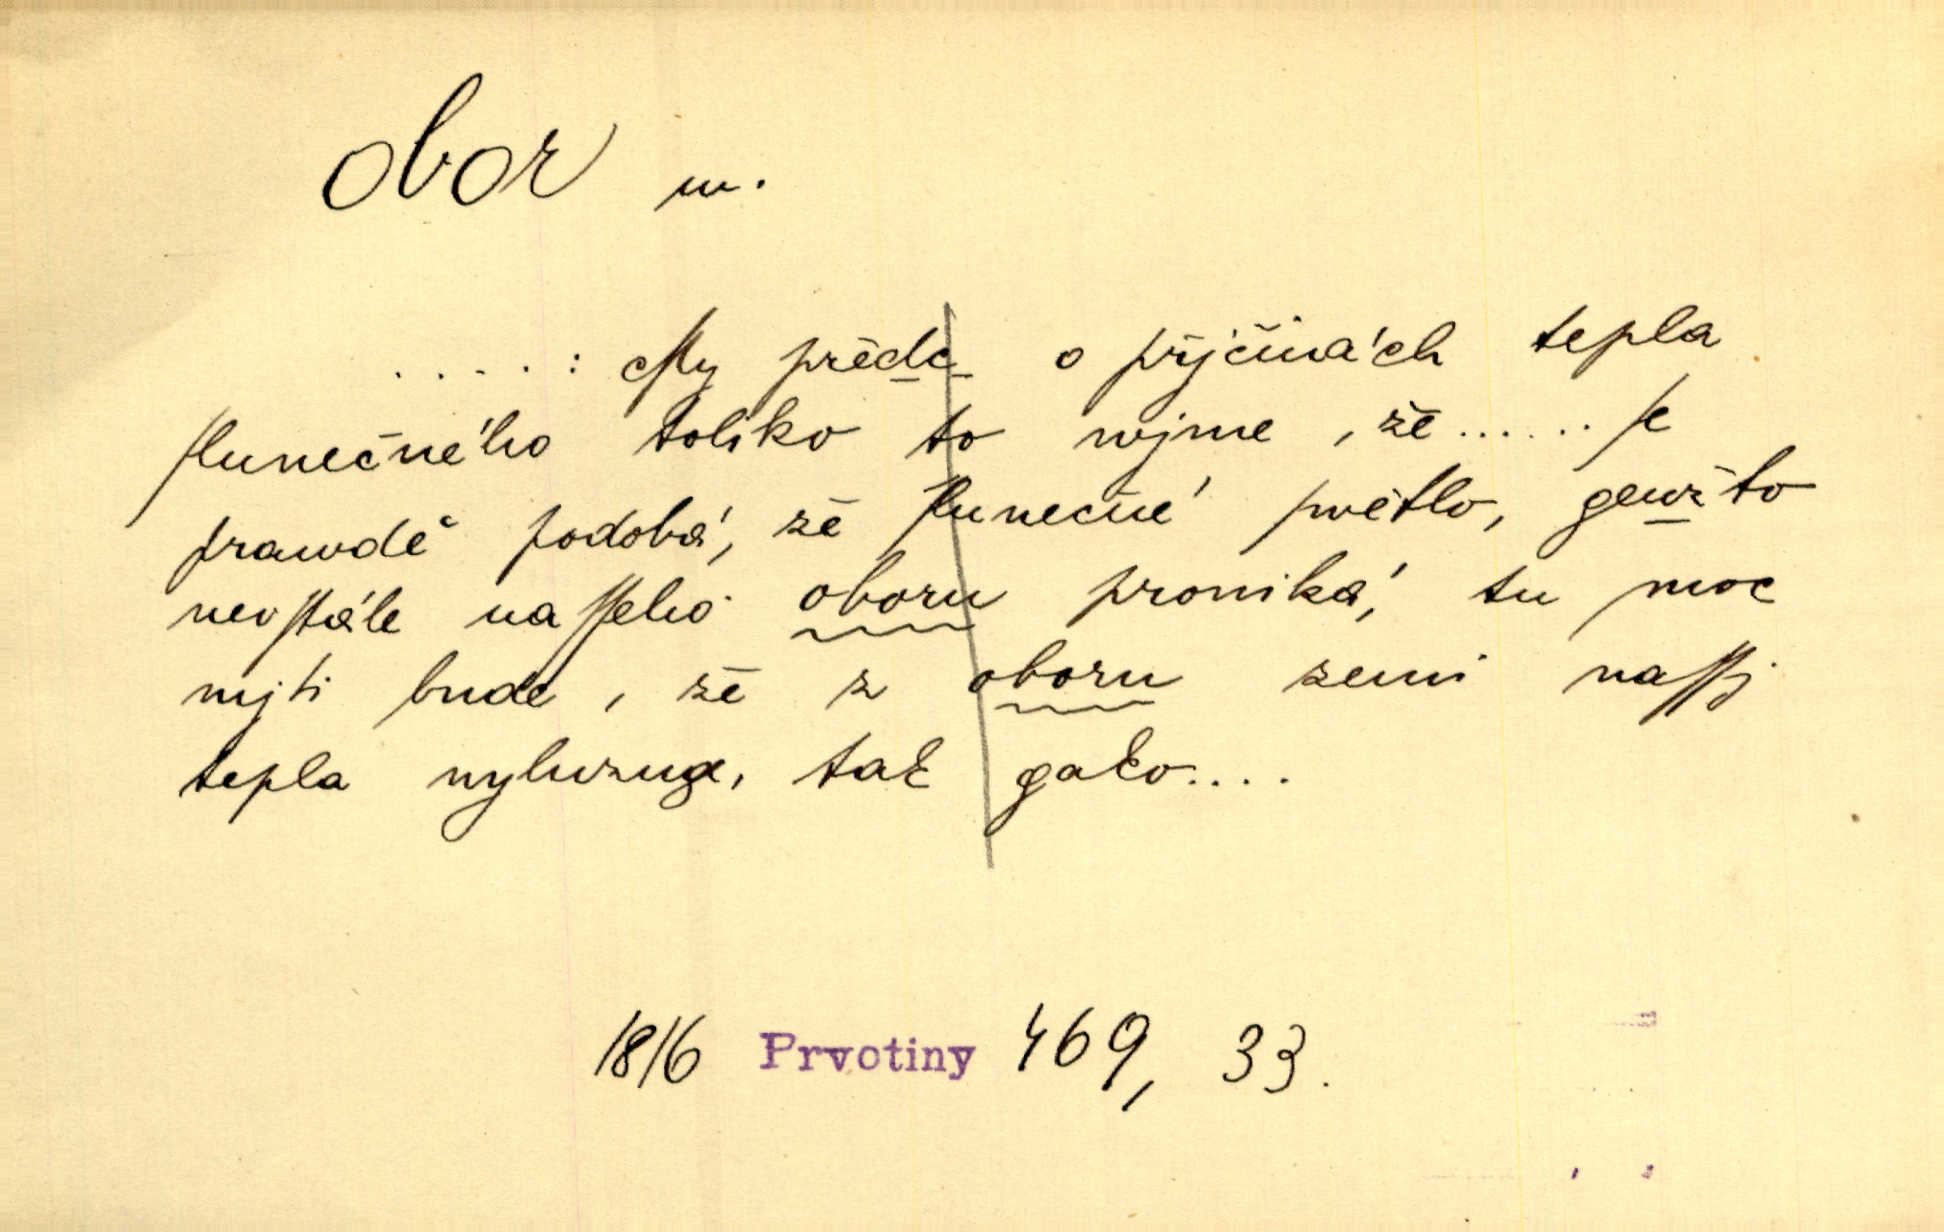 obor m.
. . . . . : My předc o přjčinách tepla
ſlunečného toliko to wjme , že . . . . . . ſe
prawdě podobá, že ſlunečné ſwětlo, genžto
neoſtále naſſeho oboru proniká, tu moc
mjti bude , že z oboru zemi naſſj
tepla wyluzuge, tak gako . . . .
1816 Prvotiny 469, 33.